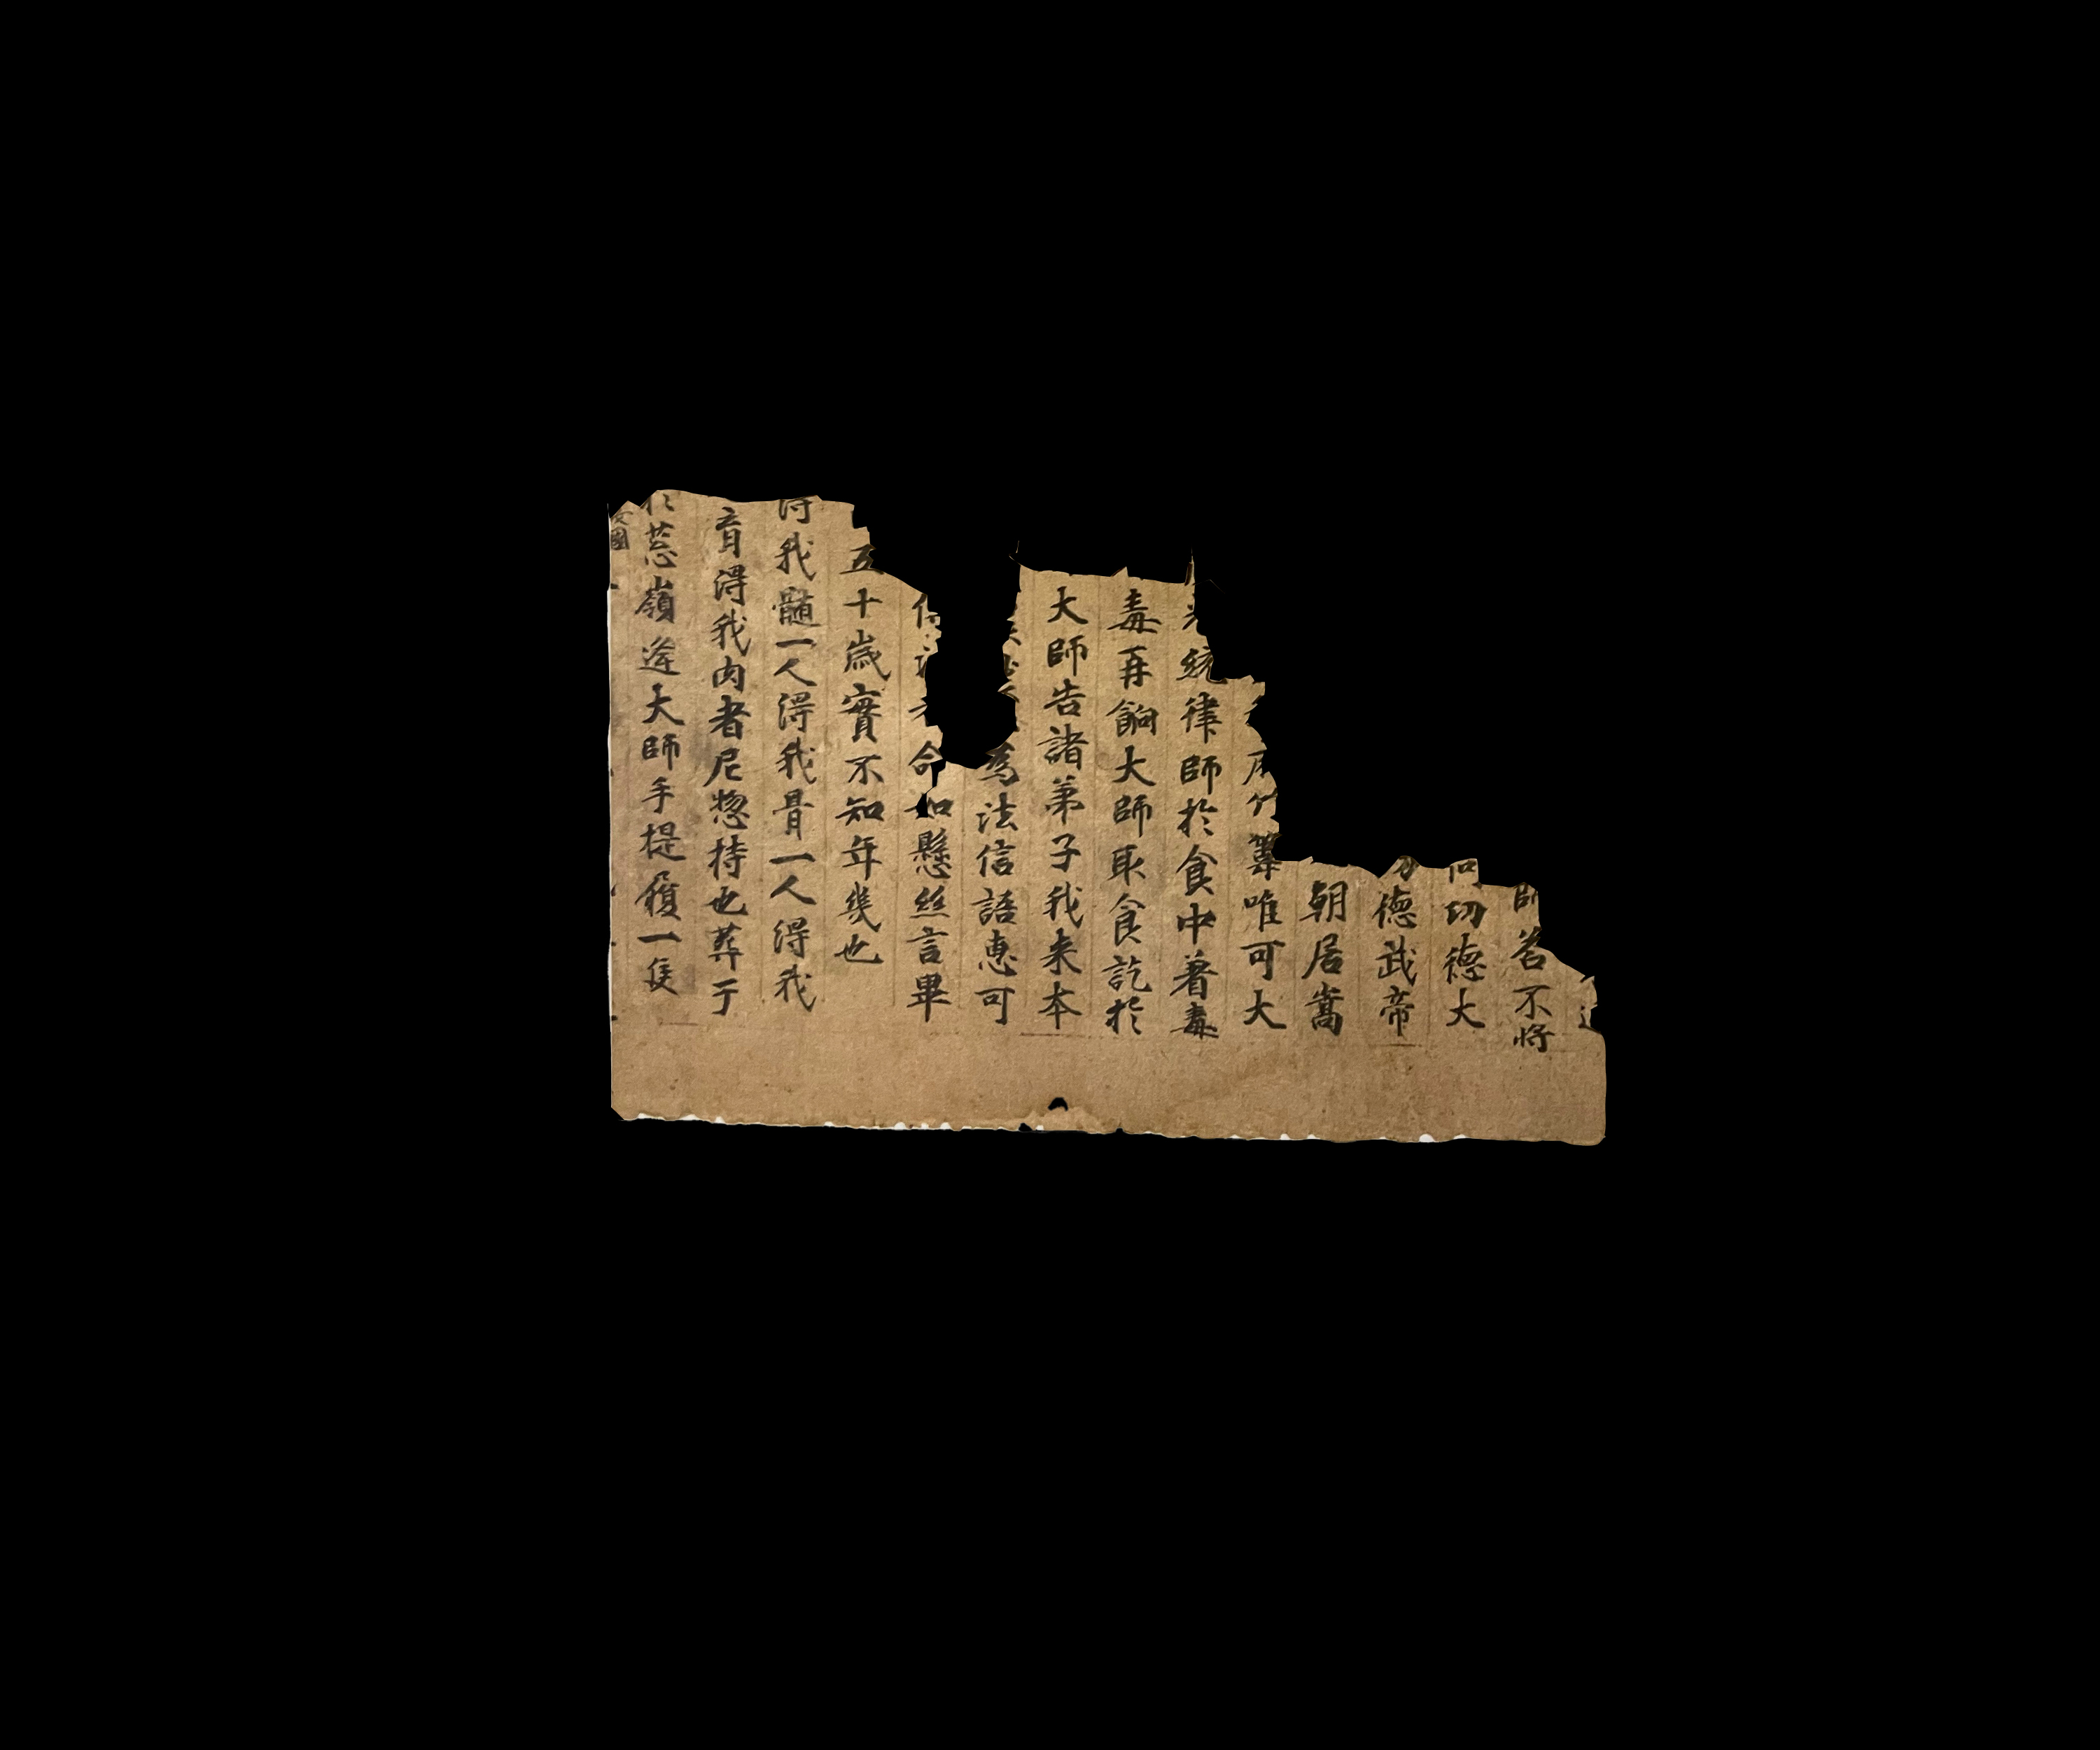 師若不將
功德大
德武帝
朝居嵩
唯可大
統律師於食中著毒
毒再餉大師取食訖於
大師告諸弟子我来本
為法信語惠可
命如懸絲言畢
五十歳實不知年幾也
得我髓一人得我骨一人得我
育得我肉者尼惣持也葬于
於葱嶺逢大師手提履一隻
國